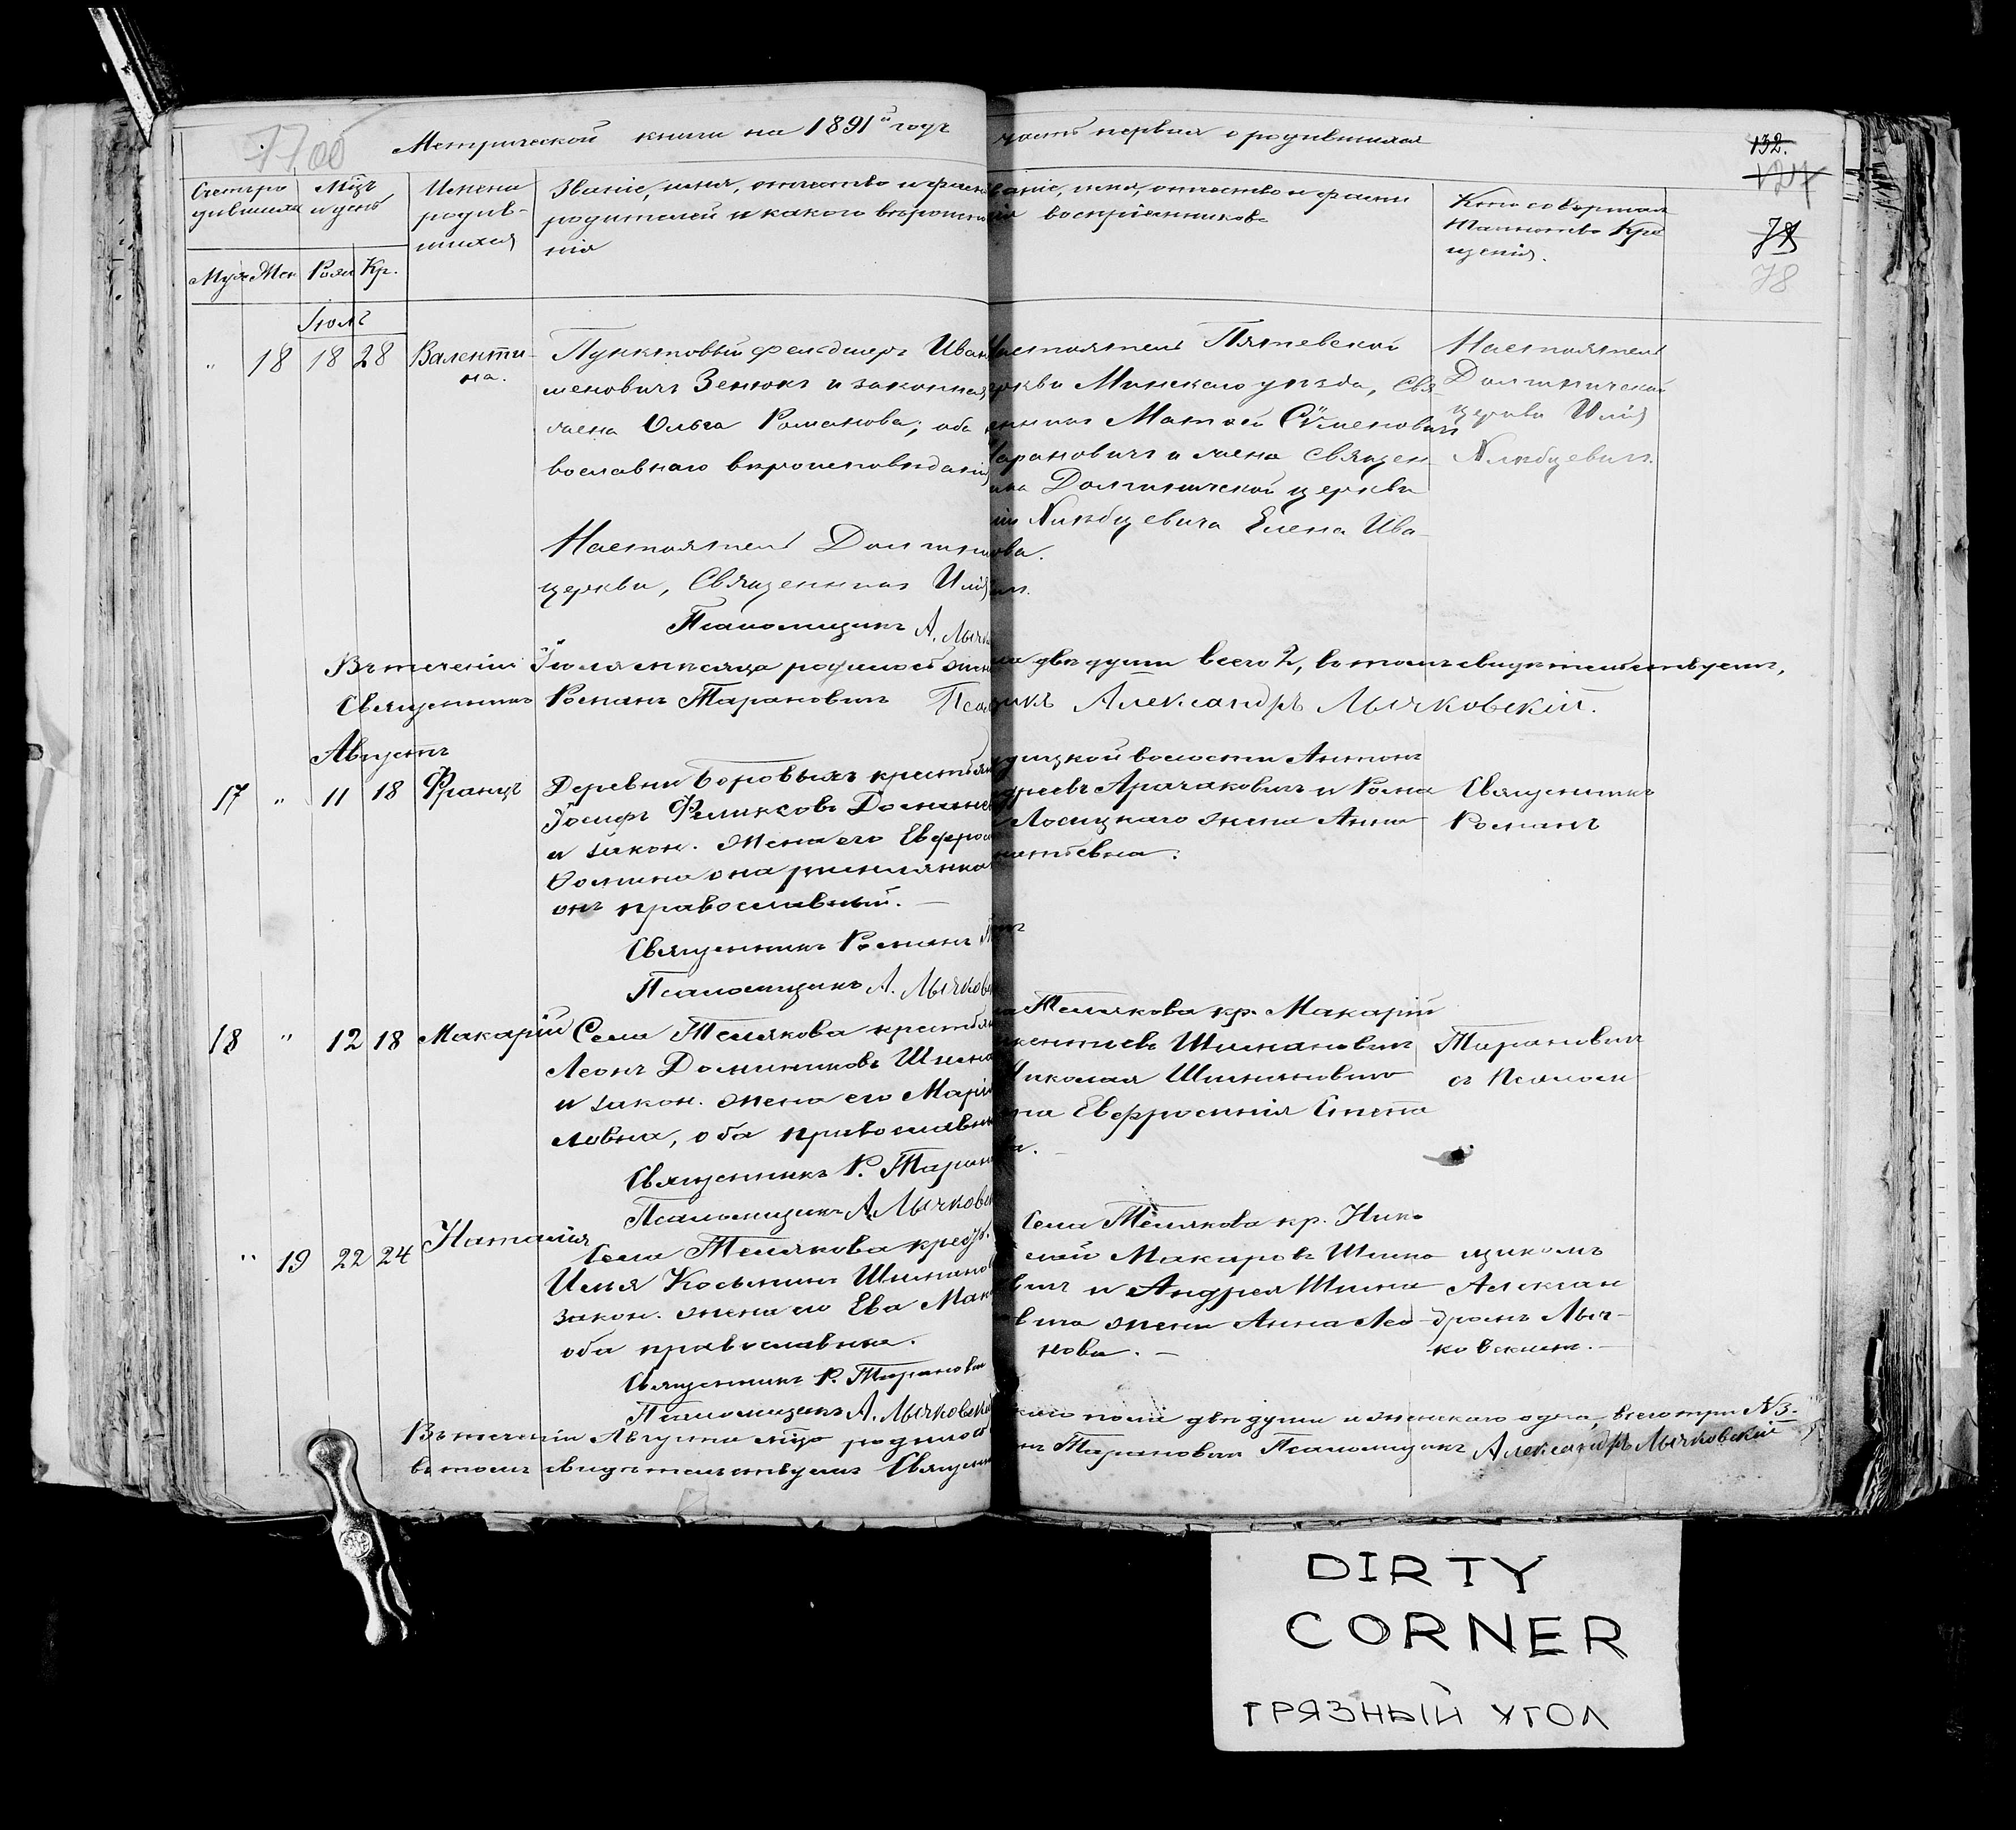 Метрической книги на 1891й годъ часть первая о родившихся
132.
78
Счетъ ро
дившихся
Мцъ
и день
Имена
родив-
шихся
Званіе, имя, отчество и фам
родителей и какого вѣроиспо
нія
Муж Жен Рожд Кр.
ваніе, имя, отчество и фами
воспріемниковъ
Кто совершал
Таинство Кре
щенія.
Іюль
" 18 18 28 Валенти-
на.
Пунктовый фельдшеръ Иван
меновичъ Зенюкъ и законная
жена Ольга Романова; оба
вославнаго вѣроисповѣданія
Настоятель Долгин
церкви, Священникъ Илія
Псаломщикъ А. Лычк
Настоятель Пятевской
церкви Минскаго уѣзда, Свя-
щенникъ Матѳей Сѵменовичъ
Тарановичъ и жена Священ-
ника Долгиничской церкви
Ева Елена Ива-
нова.
Настоятель
Долгиничской
церкви Илія
Въ теченіи Іюля мѣсяца родилось жен
ка двѣ души всего 2, въ томъ свидѣтельствуемъ,
Священникъ Романъ Тарановичъ Псал
щикъ Александръ Лычковскій.
Августъ
17 " 11 18 Францъ
Деревни Боровыхъ крестьян
Іосифъ Феликсовъ Домане
и закон. жена его Евфрос
Ѳомина она римлянка
онъ православный. —
Священникъ Романъ
Псаломщикъ А. Лычковс
дицкой волости Антонъ
Лосицкаго жена Анна
натьевна.
Священникъ
Романъ
18 " 12 18 Макарій
Села Телякова крестьян
Леонъ Доминиковъ Шима
и закон. жена его Марія
ловна, оба православны
Священникъ Р. Таран
Псаломщикъ А. Лычковс
Телякова кр. Макарій
Шимановичъ
Николая Шимановича
на Евфросинія Степа
ва. —
Тарановичъ
съ Псалом-
" 19 22 24 Наталія
Села Телякова крест.
Илья Косьминъ Шиманов
закон. жена его Ева Мак
оба православные.
Священникъ Р. Тарановичъ
Псаломщикъ А. Лычковскій
Села Телякова кр. Нико
лай Макаровъ Шима
вичъ и Андрея Шима
вича жена Анна Лео-
нова. —
щикомъ
Алексан
дромъ Лыч-
ковскимъ. —
Въ теченіи Августа мѣца родилось
скаго пола двѣ души и женскаго одна, всего три №3-
въ томъ свидѣтельствуемъ Священ
Тарановичъ Псаломщикъ Александръ Лычковскій
DIRTY
CORNER
ГРЯЗНЫЙ УГОЛ